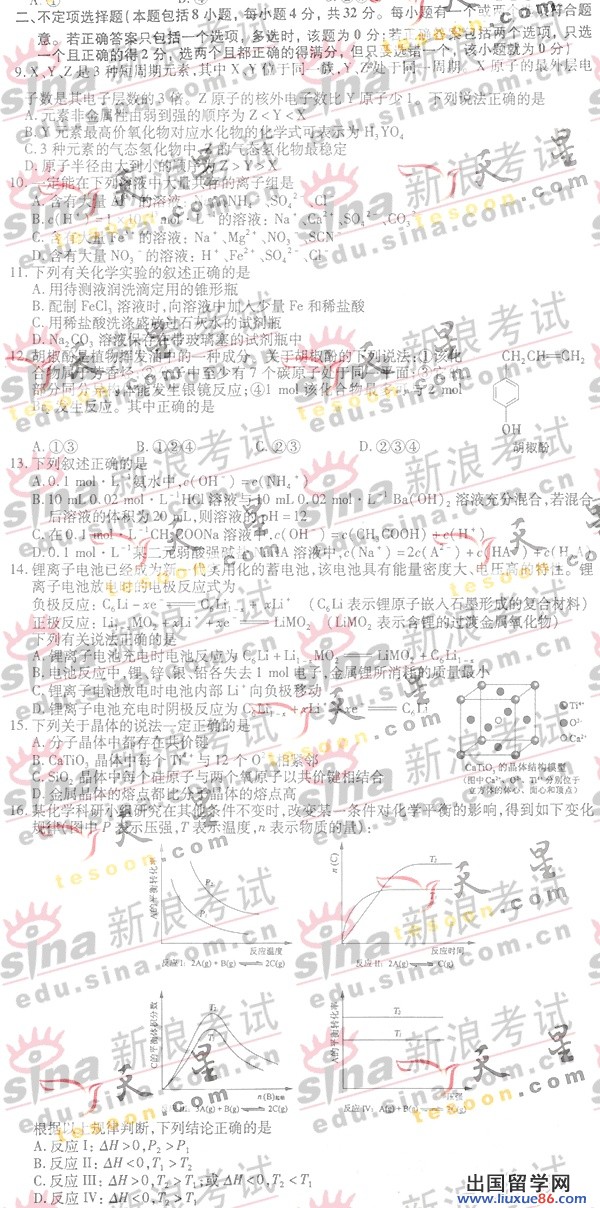 二、不定项选择题(本题包括8小题,每小题4分,共32分。每小题有一个或两个选项符合题
意。若正确答案只包括一个选项,多选时,该题为0分;若正确答案包括两个选项,只选
一个且正确的得2分,选两个且都正确的得满分,但只要选错一个,该小题就为0分)
9.X、Y、Z是3种短周期元素,其中X、Y位于同一族,Y、Z处于同一周期。X原子的最外层电
子数是其电子层数的3倍。Z原子的核外电子数比Y原子少1。下列说法正确的是
A.元素非金属性由弱到强的顺序为Z<Y<X
B.Y元素最高价氧化物对应水化物的化学式可表示为H₃YO₄
C.3种元素的气态氢化物中,Z的气态氢化物最稳定
D.原子半径由大到小的顺序为Z>Y>X
10.一定能在下列溶液中大量共存的离子组是
A.含有大量 的溶液: NH₄⁺、SO₄²⁻、Cl⁻
B.c(H⁺)=1×10 mol·L⁻¹的溶液:Na⁺、Ca²⁺、SO₄²⁻、CO₃²⁻
C.含有大量Fe 的溶液:Na⁺、Mg²⁺、NO₃⁻、SCN⁻
D.含有大量NO₃⁻的溶液:H⁺、Fe²⁺、SO₄²⁻、Cl⁻
11.下列有关化学实验的叙述正确的是
A.用待测液润洗滴定用的锥形瓶
B.配制FeCl₃溶液时,向溶液中加入少量Fe和稀盐酸
C.用稀盐酸洗涤盛放过石灰水的试剂瓶
D.Na₂CO₃溶液保存在带玻璃塞的试剂瓶中
12.胡椒酚是植物挥发油中的一种成分。关于胡椒酚的下列说法:①该化
合物属于芳香烃;②分子中至少有7个碳原子处于同一平面;③它的
部分同分异构体能发生银镜反应;④1 mol该化合物最多可与2 mol
发生反应。其中正确的是
CH₂CH═CH₂
OH
胡椒酚
A.①③ B.①②④ C.②③ D.②③④
13.下列叙述正确的是
A.0.1 mol·L⁻¹氨水中,c(OH⁻)=c(NH₄⁺)
B.10 mL 0.02 mol·L⁻¹HCl溶液与10 mL 0.02 mol·L⁻¹Ba(OH)₂溶液充分混合,若混合
后溶液的体积为20 mL,则溶液的pH=12
C.在0.1 mol·L⁻¹CH₃COONa溶液中,c(OH⁻)=c(CH₃COOH)+c(H⁺)
D.0.1 mol·L⁻¹某二元弱酸强碱盐NaHA溶液中,c(Na⁺)=2c(A²⁻)+c(HA⁻)+c(H₂A)
14.锂离子电池已经成为新一代实用化的蓄电池,该电池具有能量密度大、电压高的特性。锂
离子电池放电时的电极反应式为
负极反应:C₆Li-xe⁻═C₆Li₁₋ₓ+xLi⁺ (C₆Li表示锂原子嵌入石墨形成的复合材料)
正极反应:Li₁₋ₓMO₂+xLi⁺+xe⁻═LiMO₂ (LiMO₂表示含锂的过渡金属氧化物)
下列有关说法正确的是
A.锂离子电池充电时电池反应为C₆Li+Li₁₋ₓMO₂═LiMO₂+C₆Li₁₋ₓ
B.电池反应中,锂、锌、银、铅各失去1 mol电子,金属锂所消耗的质量最小
C.锂离子电池放电时电池内部Li⁺向负极移动
D.锂离子电池充电时阴极反应为C₆Li₁₋ₓ+xLi⁺+xe⁻═C₆Li
15.下列关于晶体的说法一定正确的是
A.分子晶体中都存在共价键
B.CaTiO₃晶体中每个Ti⁴⁺与12个O²⁻相紧邻
C.SiO₂晶体中每个硅原子与两个氧原子以共价键相结合
D.金属晶体的熔点都比分子晶体的熔点高
Ti⁴⁺
O²⁻
Ca²⁺
CaTiO₃的晶体结构模型
(图中Ca²⁺、O²⁻、Ti⁴⁺分别位于
立方体的体心、面心和顶点)
16.某化学科研小组研究在其他条件不变时,改变某一条件对化学平衡的影响,得到如下变化
规律(图中P表示压强,T表示温度,n表示物质的量):
A的平衡转化率
P₂
P₁
反应温度
反应I:2A(g)+B(g)⇌2C(g)
n(C)
T₂
反应时间
反应II:2A(g)⇌C(g)
C的平衡体积分数
T₂
T₁
n(B)起始
3A(g)+B(g)⇌2C(g)
A的平衡转化率
T₂
T₁
压强
反应IV:A(g)+B(g)⇌
根据以上规律判断,下列结论正确的是
A.反应I:ΔH>0,P₂>P₁
B.反应II:ΔH<0,T₁>T₂
C.反应III:ΔH>0,T₂>T₁;或ΔH<0,T₂<T₁
D.反应IV:ΔH<0,T₂>T₁
sina新浪考试
edu.sina.com.cn
天星
tesoon.com
出国留学网
www.liuxue86.com